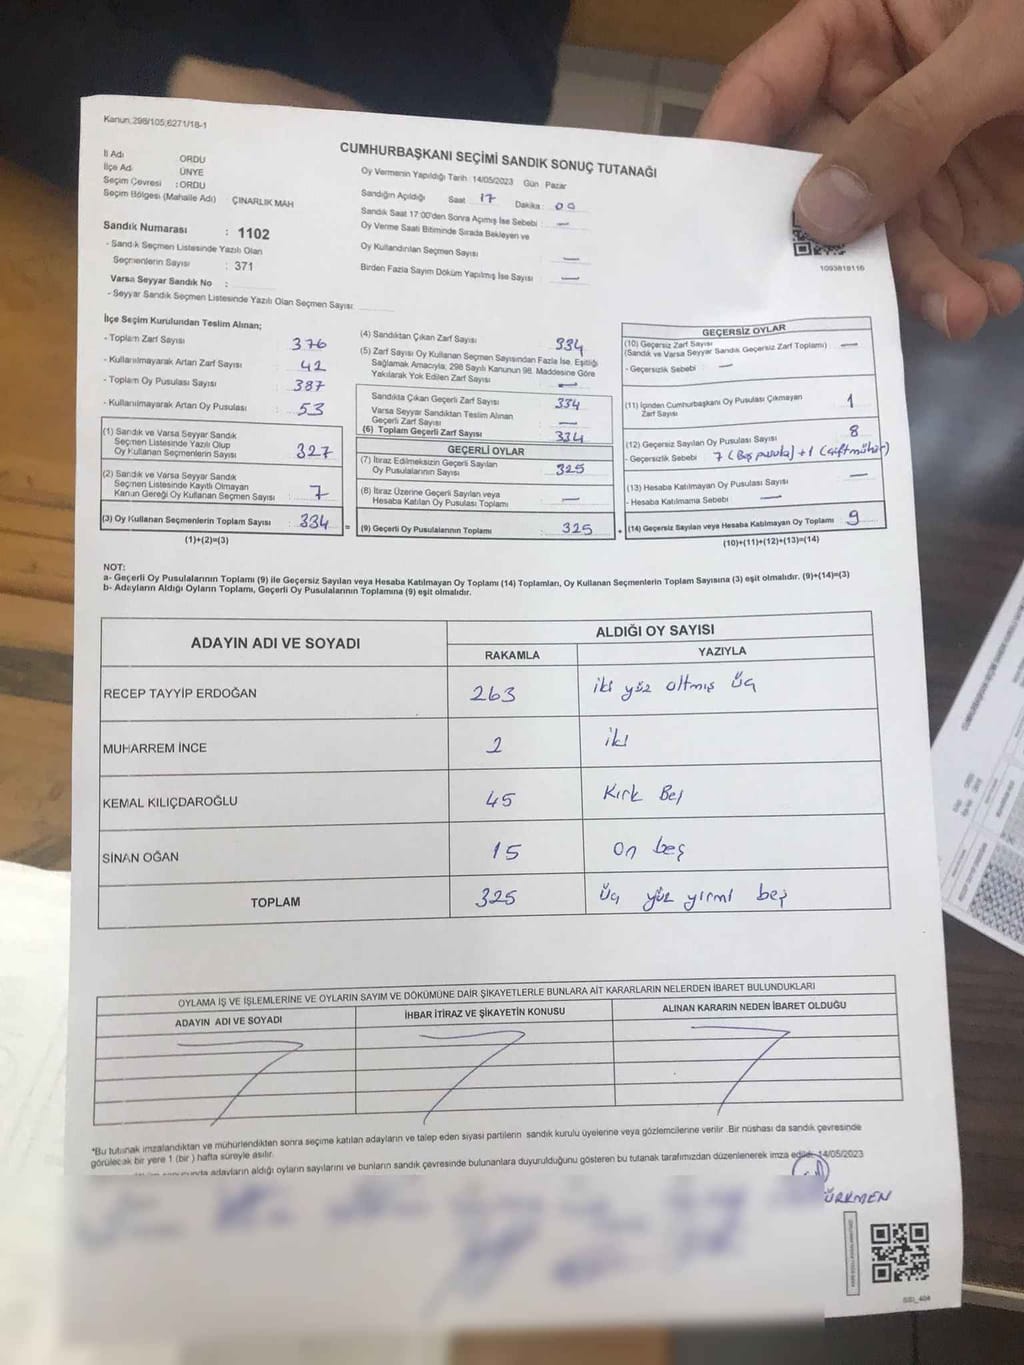 Kanun, 298/105;6271/18-1
CUMHURBAŞKANI SEÇİMİ SANDIK SONUÇ TUTANAĞI
İl Adı ORDU
İlçe Adı ÜNYE
Seçim Çevresi : ORDU
Seçim Bölgesi (Mahalle Adı) ÇINARLIK MAH
Sandık Numarası : 1102
- Sandık Seçmen Listesinde Yazılı Olan
Seçmenlerin Sayısı : 371
Varsa Seyyar Sandık No :
- Seyyar Sandık Seçmen Listesinde Yazılı Olan Seçmen Sayısı
Oy Vermenin Yapıldığı Tarih 14/05/2023 Gün Pazar
Sandığın Açıldığı Saat 17 Dakika : 09
Sandık Saat 17:00'den Sonra Açımış İse Sebebi : —
Oy Verme Saati Bitiminde Sırada Bekleyen ve
Oy Kullandırılan Seçmen Sayısı —
Birden Fazla Sayım Döküm Yapılmış İse Sayısı —
1093818116
İlçe Seçim Kurulundan Teslim Alınan;
- Toplam Zarf Sayısı 376
- Kullanılmayarak Artan Zarf Sayısı 42
- Toplam Oy Pusulası Sayısı 387
- Kullanılmayarak Artan Oy Pusulası 53
(1) Sandık ve Varsa Seyyar Sandık
Seçmen Listesinde Yazılı Olup
Oy Kullanan Seçmenlerin Sayısı 327
(2) Sandık ve Varsa Seyyar Sandık
Seçmen Listesinde Kayıtlı Olmayan
Kanun Gereği Oy Kullanan Seçmen Sayısı 7
(3) Oy Kullanan Seçmenlerin Toplam Sayısı : 334 =
(1)+(2)=(3)
(4) Sandıktan Çıkan Zarf Sayısı 334
(5) Zarf Sayısı Oy Kullanan Seçmen Sayısından Fazla İse, Eşitliği
Sağlamak Amacıyla, 298 Sayılı Kanunun 98. Maddesine Göre
Yakılarak Yok Edilen Zarf Sayısı —
Sandıkta Çıkan Geçerli Zarf Sayısı 334
Varsa Seyyar Sandıktan Teslim Alınan
Geçerli Zarf Sayısı —
(6) Toplam Geçerli Zarf Sayısı 334
GEÇERLİ OYLAR
(7) İtiraz Edilmeksizin Geçerli Sayılan
Oy Pusulalarının Sayısı 325
(8) İtiraz Üzerine Geçerli Sayılan veya
Hesaba Katılan Oy Pusulası Toplamı —
(9) Geçerli Oy Pusulalarının Toplamı 325 +
GEÇERSİZ OYLAR
(10) Geçersiz Zarf Sayısı —
(Sandık ve Varsa Seyyar Sandık Geçersiz Zarf Toplamı)
- Geçersizlik Sebebi —
(11) İçinden Cumhurbaşkanı Oy Pusulası Çıkmayan
Zarf Sayısı 1
(12) Geçersiz Sayılan Oy Pusulası Sayısı 8
- Geçersizlik Sebebi 7 (Boş pusula) + 1 (çift mühür)
(13) Hesaba Katılmayan Oy Pusulası Sayısı —
- Hesaba Katılmama Sebebi —
(14) Geçersiz Sayılan veya Hesaba Katılmayan Oy Toplamı 9
(10)+(11)+(12)+(13)=(14)
NOT:
a- Geçerli Oy Pusulalarının Toplamı (9) ile Geçersiz Sayılan veya Hesaba Katılmayan Oy Toplamı (14) Toplamları, Oy Kullanan Seçmenlerin Toplam Sayısına (3) eşit olmalıdır. (9)+(14)=(3)
b- Adayların Aldığı Oyların Toplamı, Geçerli Oy Pusulalarının Toplamına (9) eşit olmalıdır.
ADAYIN ADI VE SOYADI ALDIĞI OY SAYISI
RAKAMLA YAZIYLA
RECEP TAYYİP ERDOĞAN 263 iki yüz altmış üç
MUHARREM İNCE 2 iki
KEMAL KILIÇDAROĞLU 45 Kırk Beş
SİNAN OĞAN 15 on beş
TOPLAM 325 Üç yüz yirmi beş
OYLAMA İŞ VE İŞLEMLERİNE VE OYLARIN SAYIM VE DÖKÜMÜNE DAİR ŞİKAYETLERLE BUNLARA AİT KARARLARIN NELERDEN İBARET BULUNDUKLARI
ADAYIN ADI VE SOYADI İHBAR İTİRAZ VE ŞİKAYETİN KONUSU ALINAN KARARIN NEDEN İBARET OLDUĞU
*Bu tutanak imzalandıktan ve mühürlendikten sonra seçime katılan adayların ve talep eden siyasi partilerin sandık kurulu üyelerine veya gözlemcilerine verilir. Bir nüshası da sandık çevresinde
görülecek bir yere 1 (bir ) hafta süreyle asılır.
adayların aldığı oyların sayılarını ve bunların sandık çevresinde bulunanlara duyurulduğunu gösteren bu tutanak tarafımızdan düzenlenerek imza edildi. 14/05/2023
ÜRKMEN